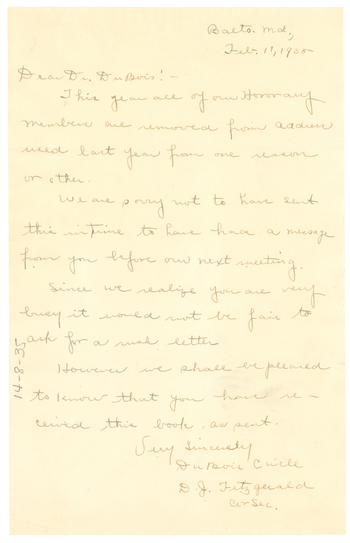 Balto. Md.,
Feb. 11, 1905
Dear Dr. DuBois! -
This year all of our Honorary
members are removed from address
used last year from one reason
or other.
We are sorry not to have sent
this in time to have had a message
from you before our next meeting.
Since we realize you are very
busy it would not be fair to
ask for a rush letter
However we shall be pleased
to know that you have re-
ceived this book as sent.
Very Sincerely
DuBois Circle
D. J. Fitzgerald
Cor Sec.
14-8-35